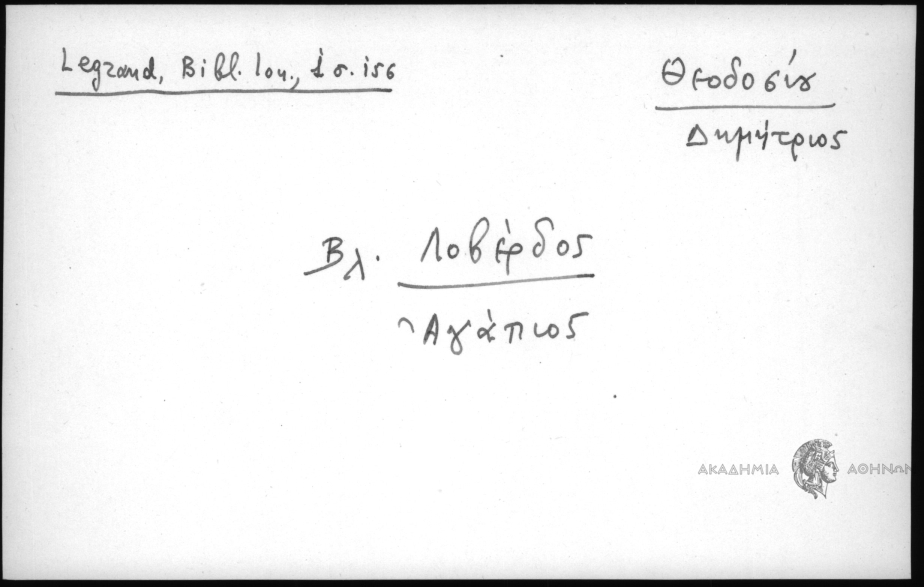 Legrand, Bibl. Ion., 1 σ. 156
Θεοδοσίου
Δημήτριος
Βλ. Λοβέρδος
Ἀγάπιος
ΑΚΑΔΗΜΙΑ ΑΘΗΝΩΝ